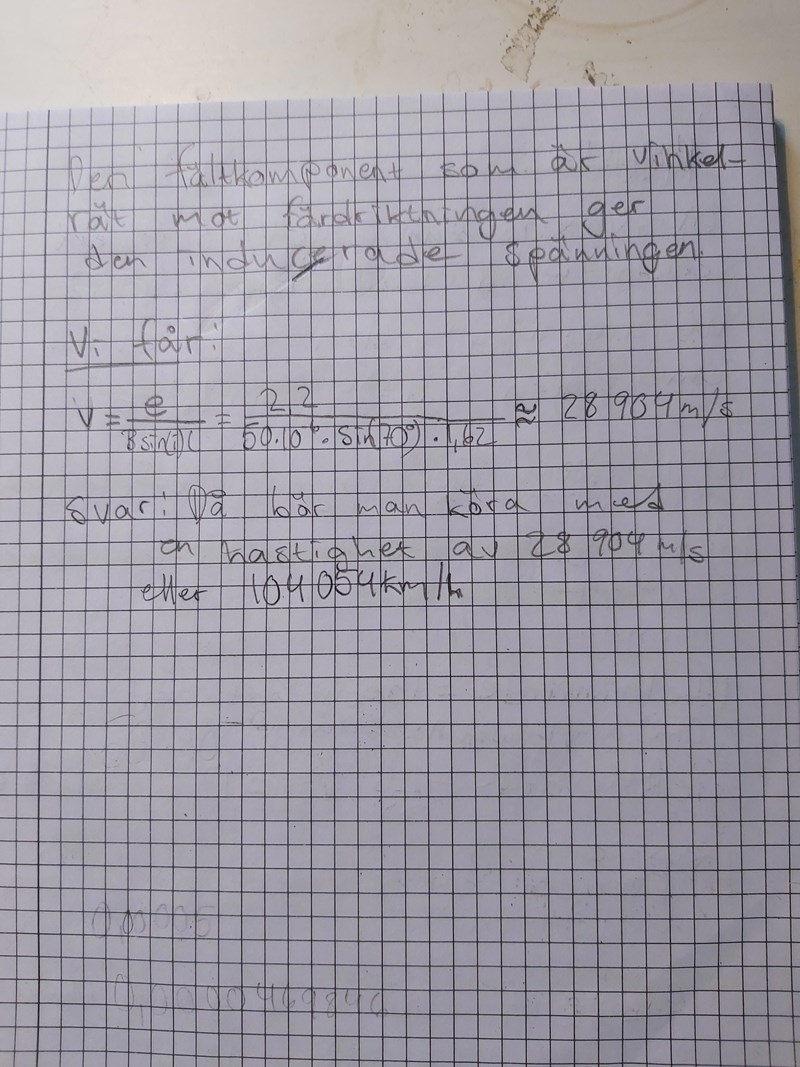 Den fältkomponent som är vinkel-
rät mot färdriktningen ger
den inducerade spänningen.
Vi får:
V = e / B sin(i) l = 2,2 / 50·10⁻⁶ · sin(70°) · 1,62 ≈ 28 904 m/s
Svar: Då bör man köra med
en hastighet av 28 904 m/s
eller 104 054 km/h
0,00005
0,0000469846